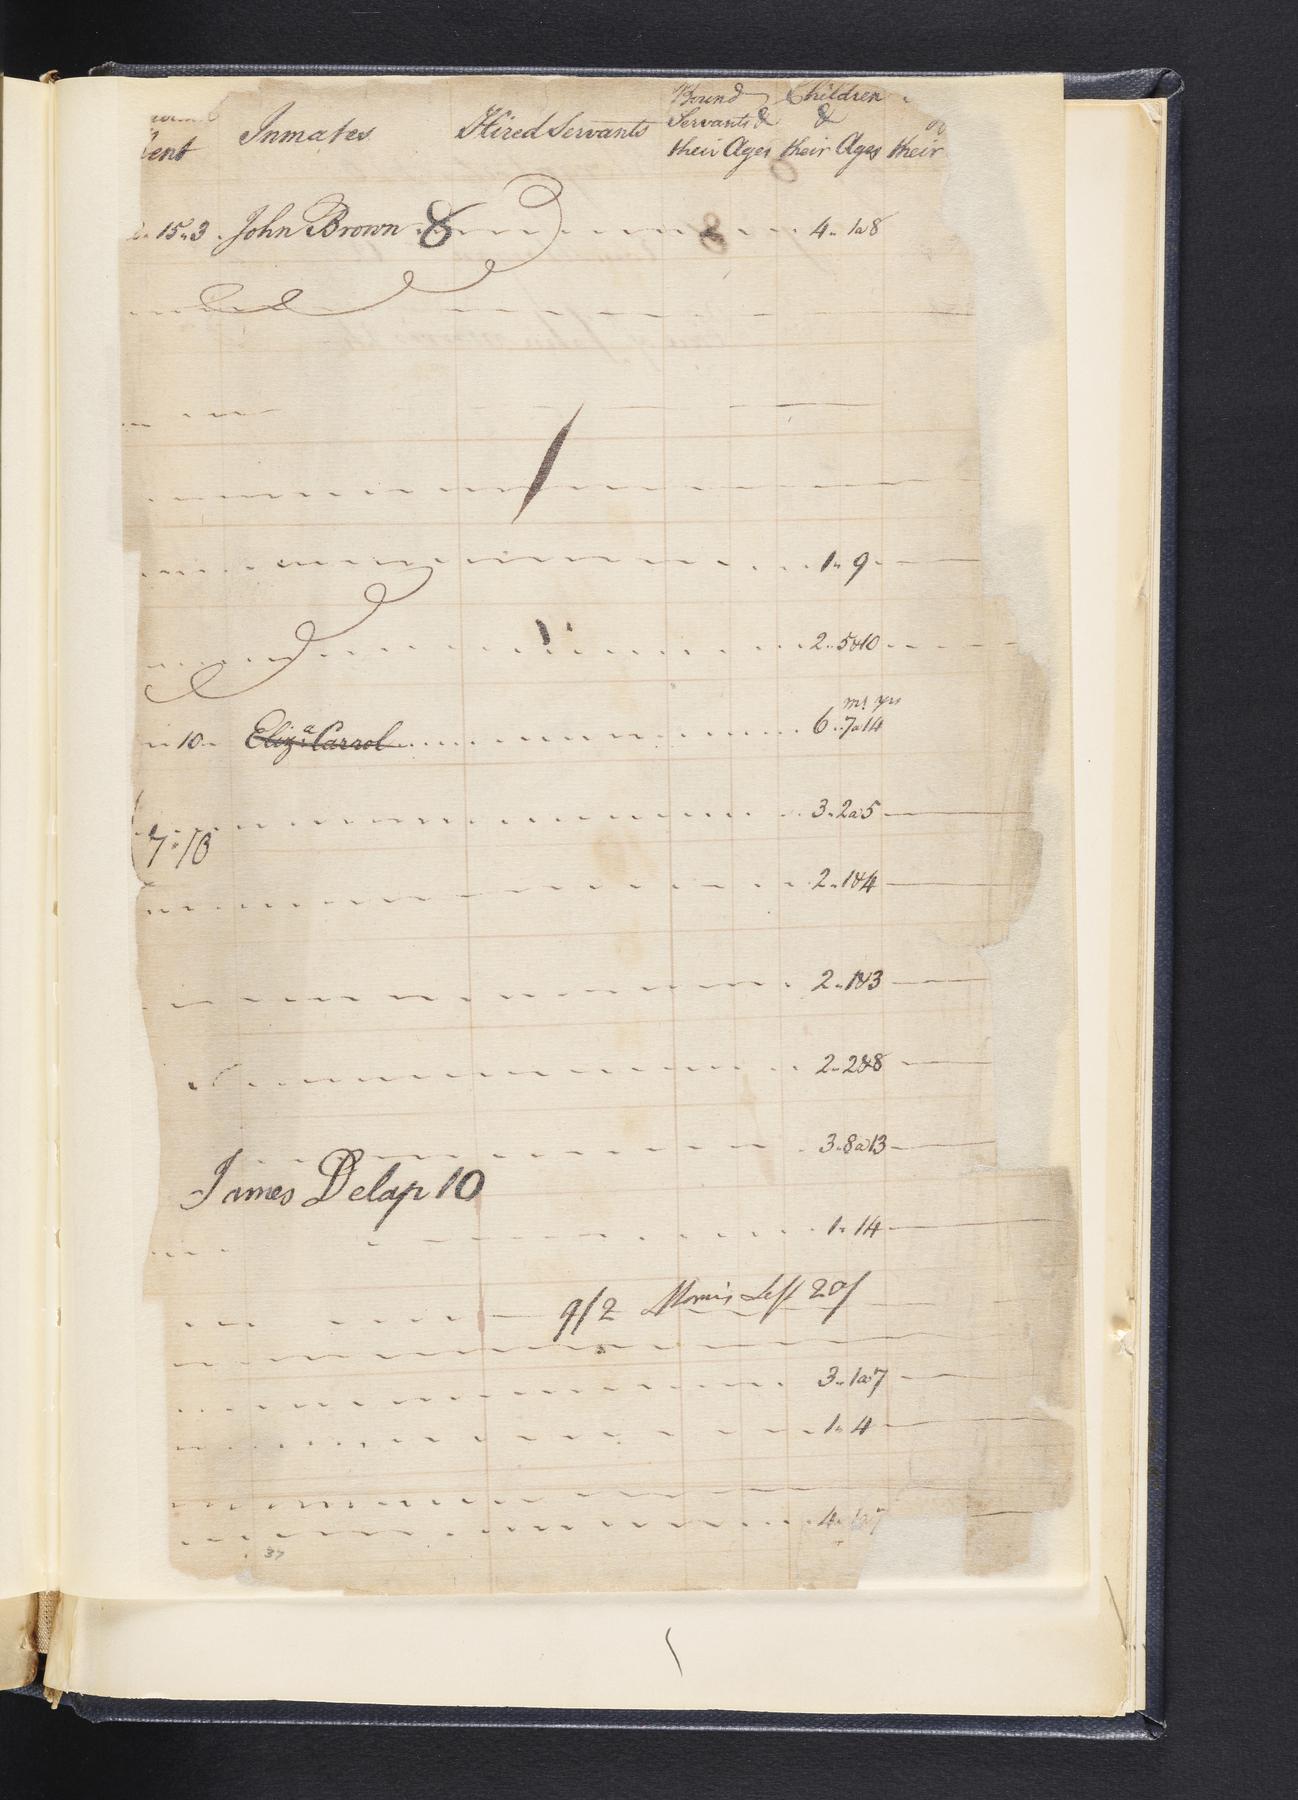 Bound Children
Inmates Hired Servants Servants & &
their Ages their Ages their
15.3 John Brown 8 8 4. 1a8
1. 9
2. 5&10
ms yrs
10 Eliza Carrol 6. 7a14
3. 2a5
7.
2. 1&4
2. 1&3
2. 2&8
3. 8a13
James Delap 10
1. 14
9/2 Morris Left 20/
3. 1a7
1. 4
4. 1a7
37